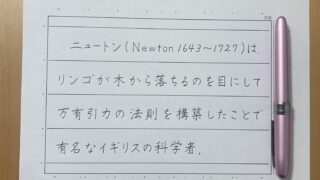 ニュートン(Newton 1643〜1727)は、
リンゴが木から落ちるのを目にして
万有引力の法則を構築したことで
有名なイギリスの科学者.